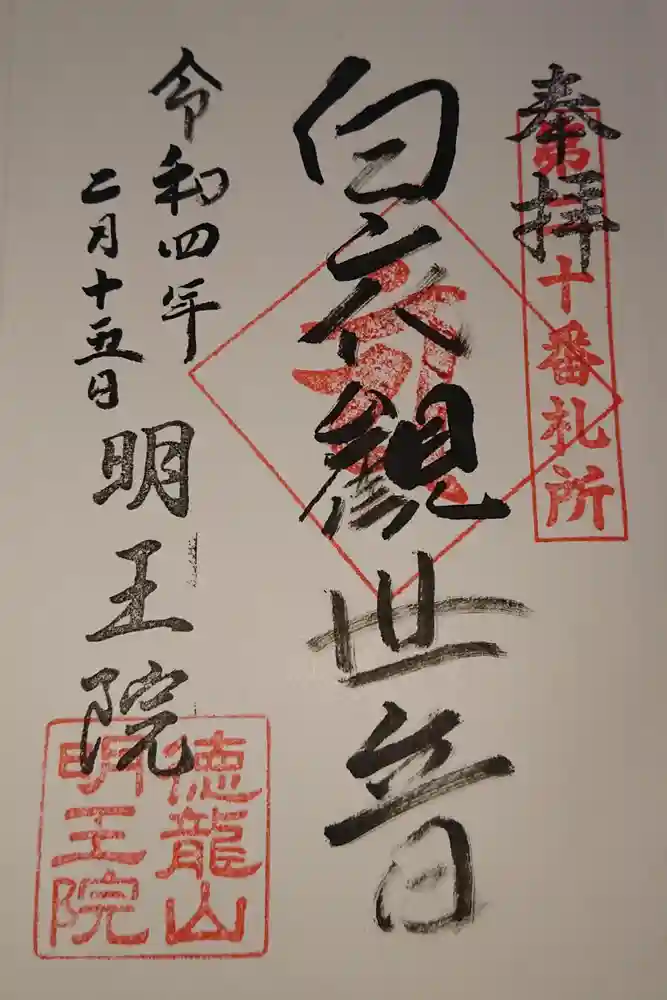 奉拝
第二十番札所
白衣観世音
令和四年
二月十五日
明王院
徳龍山
明王院